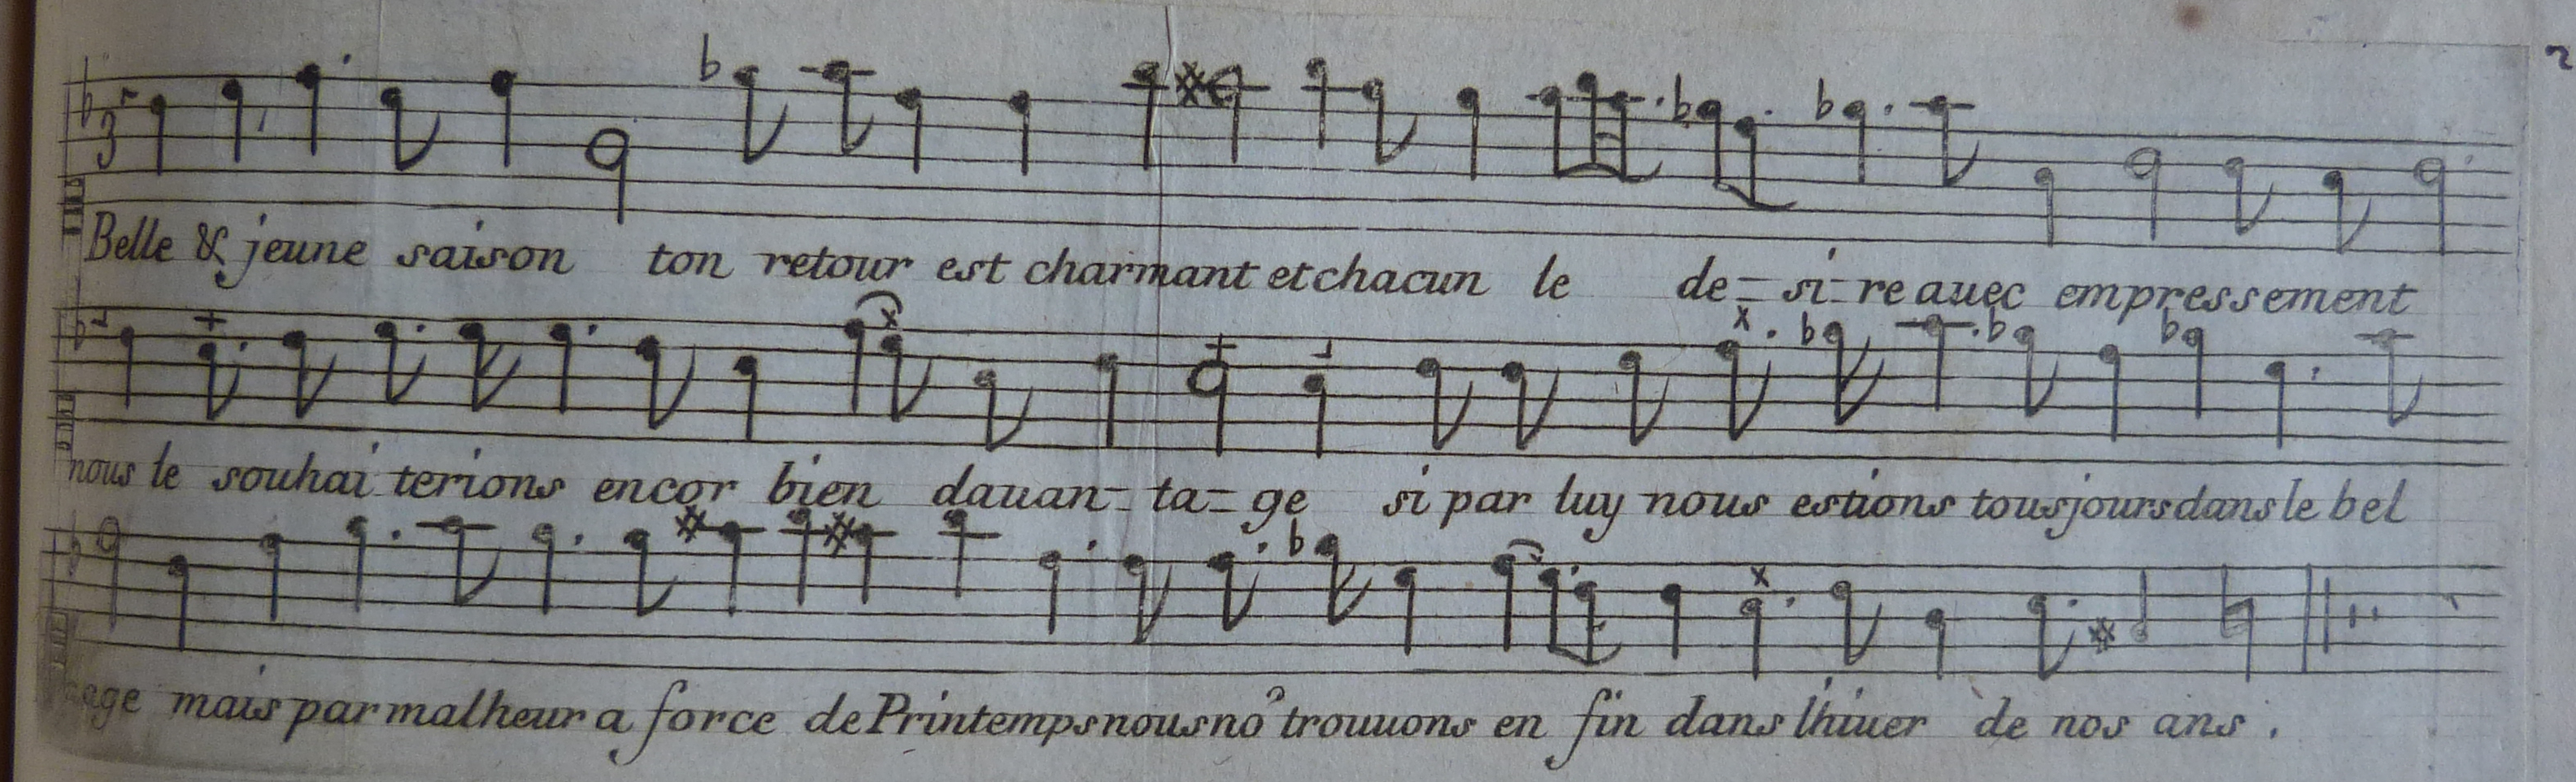 2
3
Belle & jeune saison ton retour est charmant et chacun le de=si=re auec empressement
nous le souhai terions encor bien dauan=ta=ge si par luy nous estions tousjours dans le bel
age mais par malheur a force de Printemps nous no⁹ trouuons en fin dans lhiuer de nos ans.